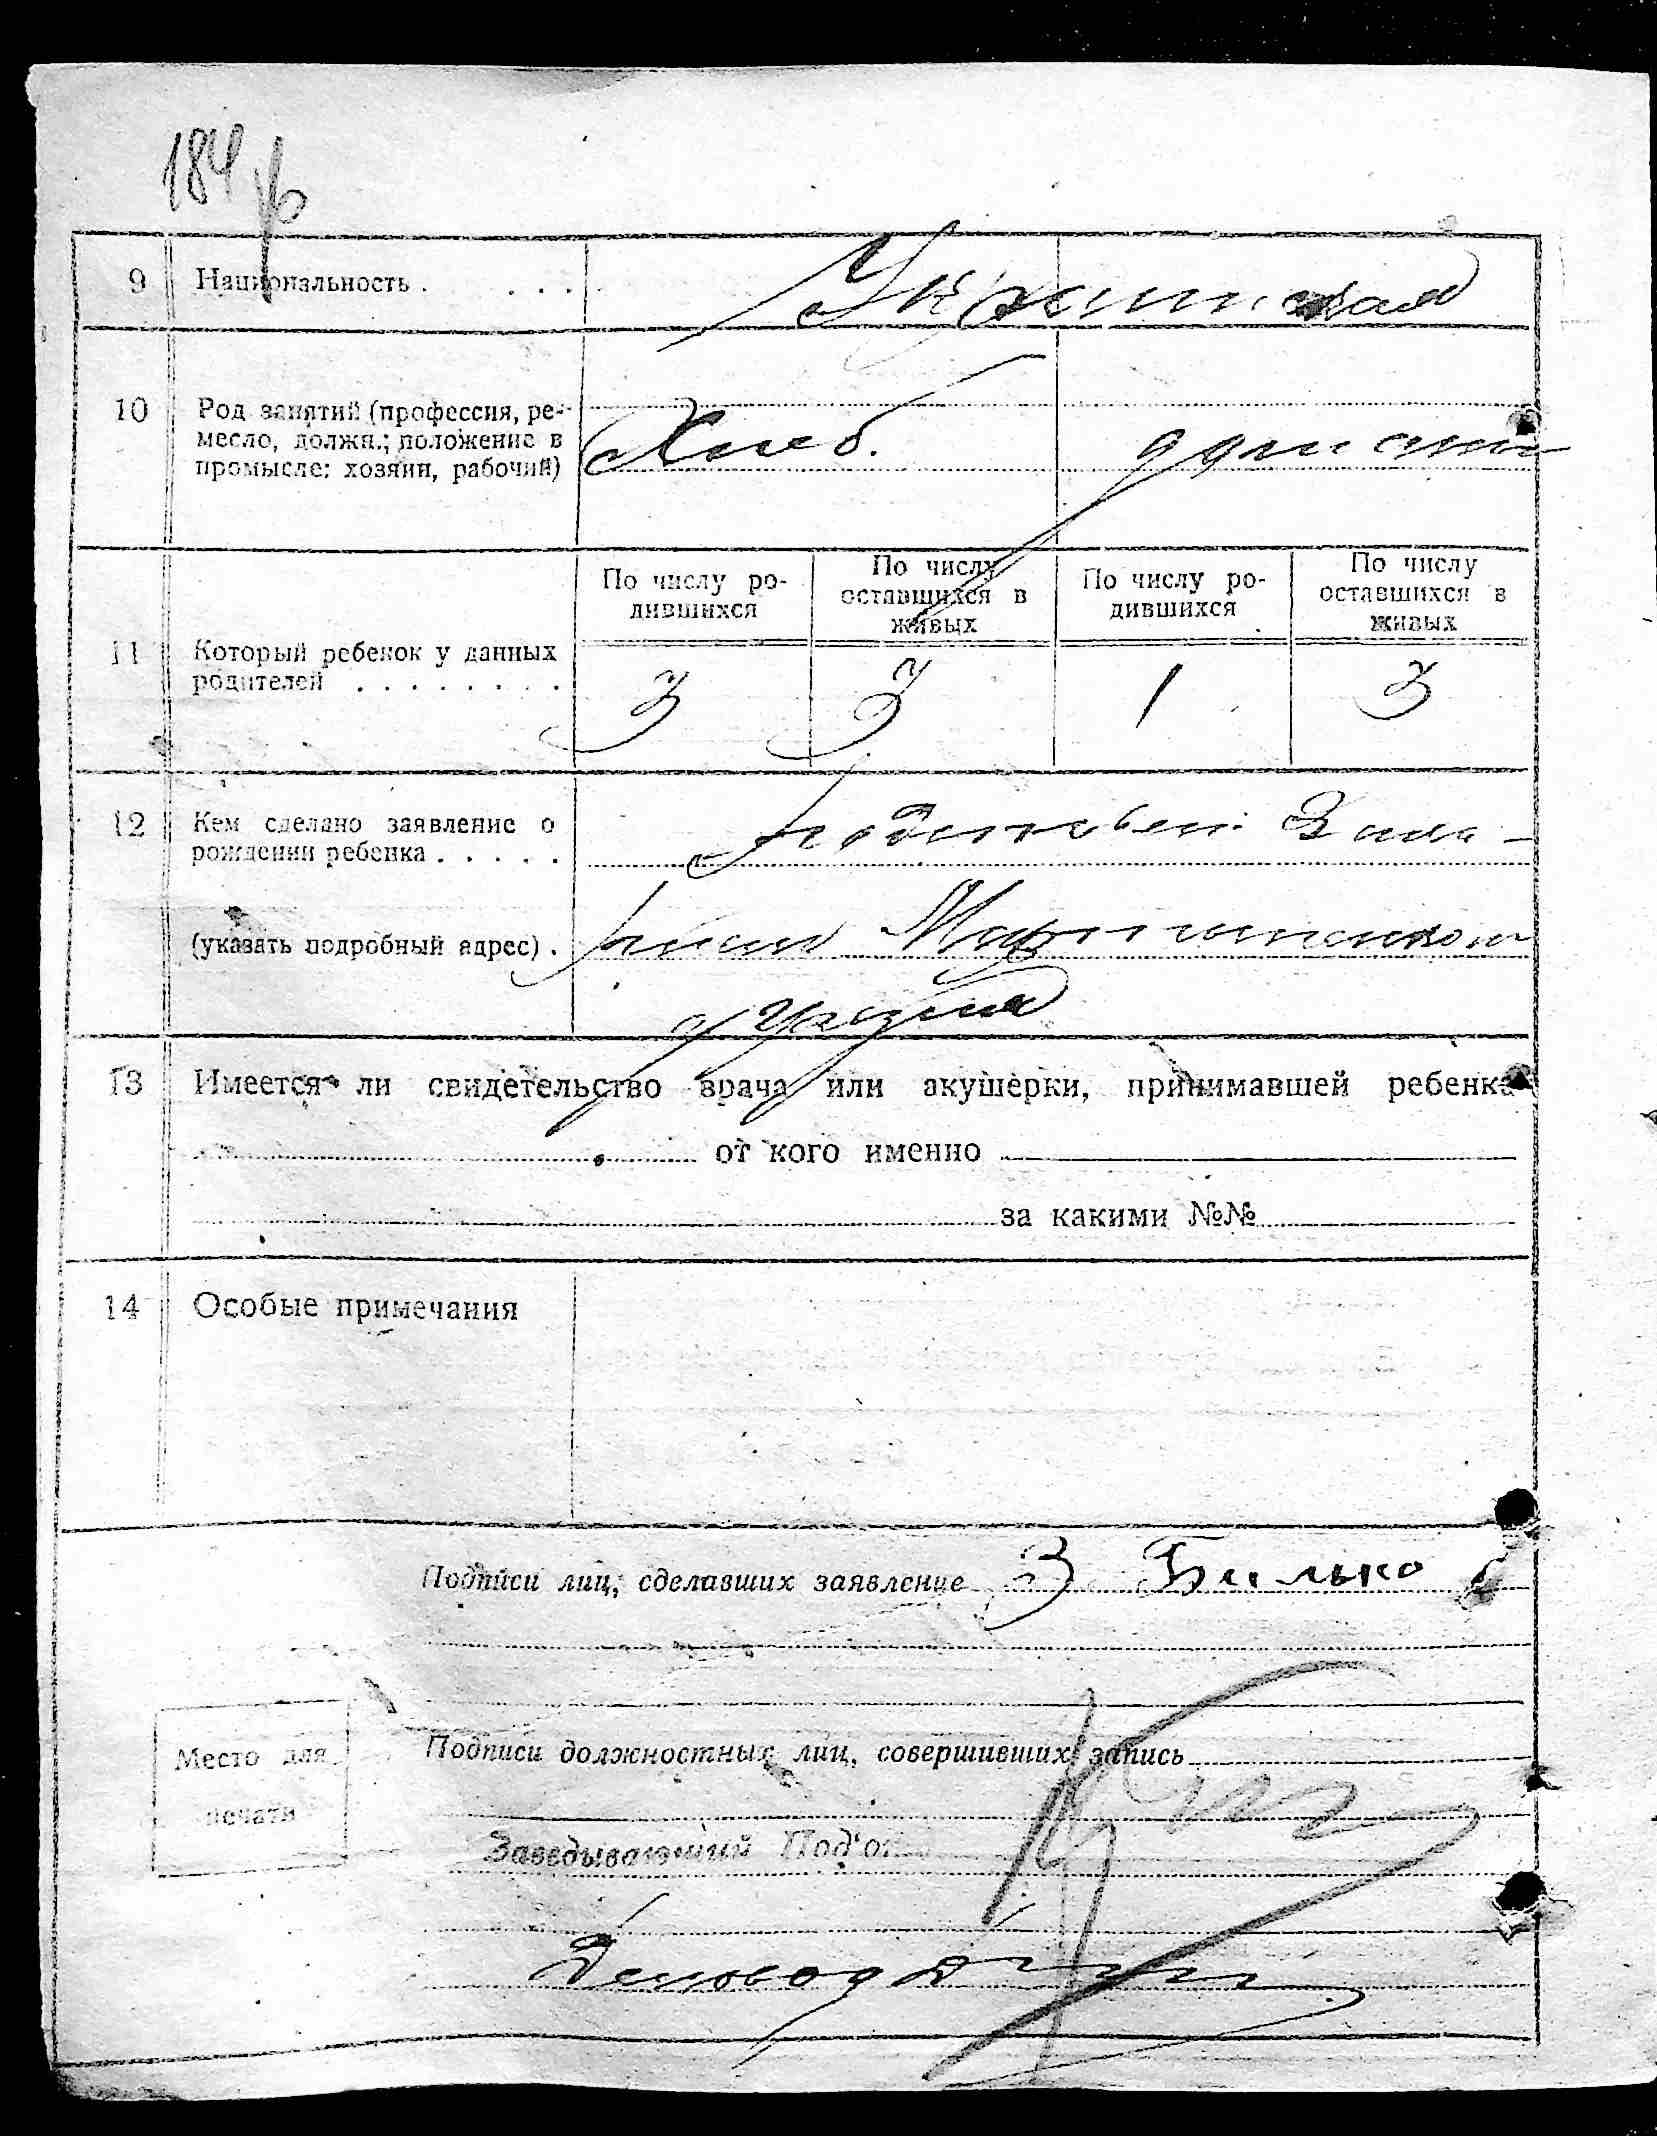 184
9 Национальность . . . . Украинская
10 Род занятий (профессия, ре-
месло, должн.; положение в
промысле: хозяин, рабочий)
Хлеб.
11 Который ребенок у данных
родителей . . . . . . . .
По числу ро-
дившихся
По числу
оставшихся в
живых
По числу ро-
дившихся
По числу
оставшихся в
живых
3 3 1 3
12 Кем сделано заявление о
рождении ребенка . . . . .
(указать подробный адрес) .
13 Имеется ли свидетельство врача или акушерки, принимавшей ребенка
от кого именно
за какими №№
14 Особые примечания
Подписи лиц, сделавших заявление З Билько
Место для
печати
Подписи должностных лиц, совершивших запись
Заведывающий Под'от
Деловод